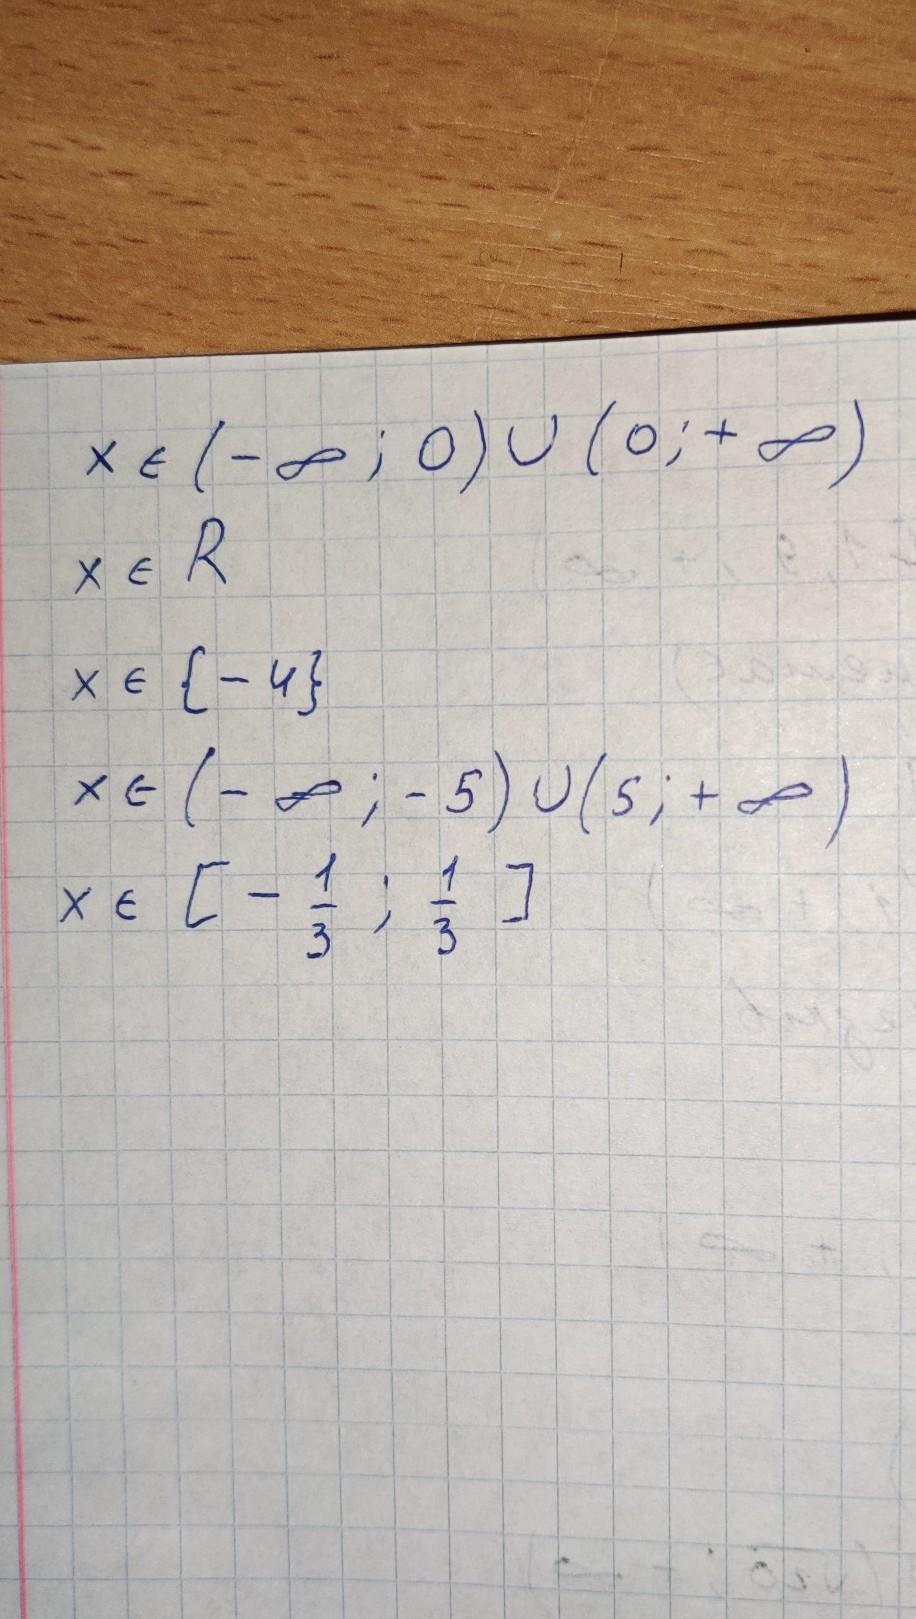 x ∈ (-∞; 0) ∪ (0; +∞)
x ∈ R
x ∈ {-4}
x ∈ (-∞; -5) ∪ (5; +∞)
x ∈ [-1/3; 1/3]